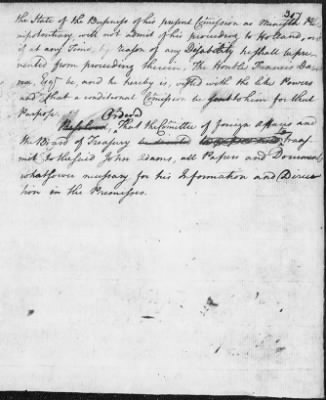 307
the State of the Business of his present Comission as Minister Ple
nipotentiary, will not admit of his proceeding to Holland, or
if at any Time, by reason of any Disability he shall be pre
vented from proceeding therein, The Honble Francis Da
na, Esqr be, and he hereby is, vested with the like Powers
and that a conditional Comission be sent to him for that
Purpose.
Ordered
Resolved, That the Comittee of foreign Affairs and
the Board of Treasury trans
mit to the said John Adams, all Papers and Documents
whatsoever necessary for his Information and Direc
tion in the Premisses.